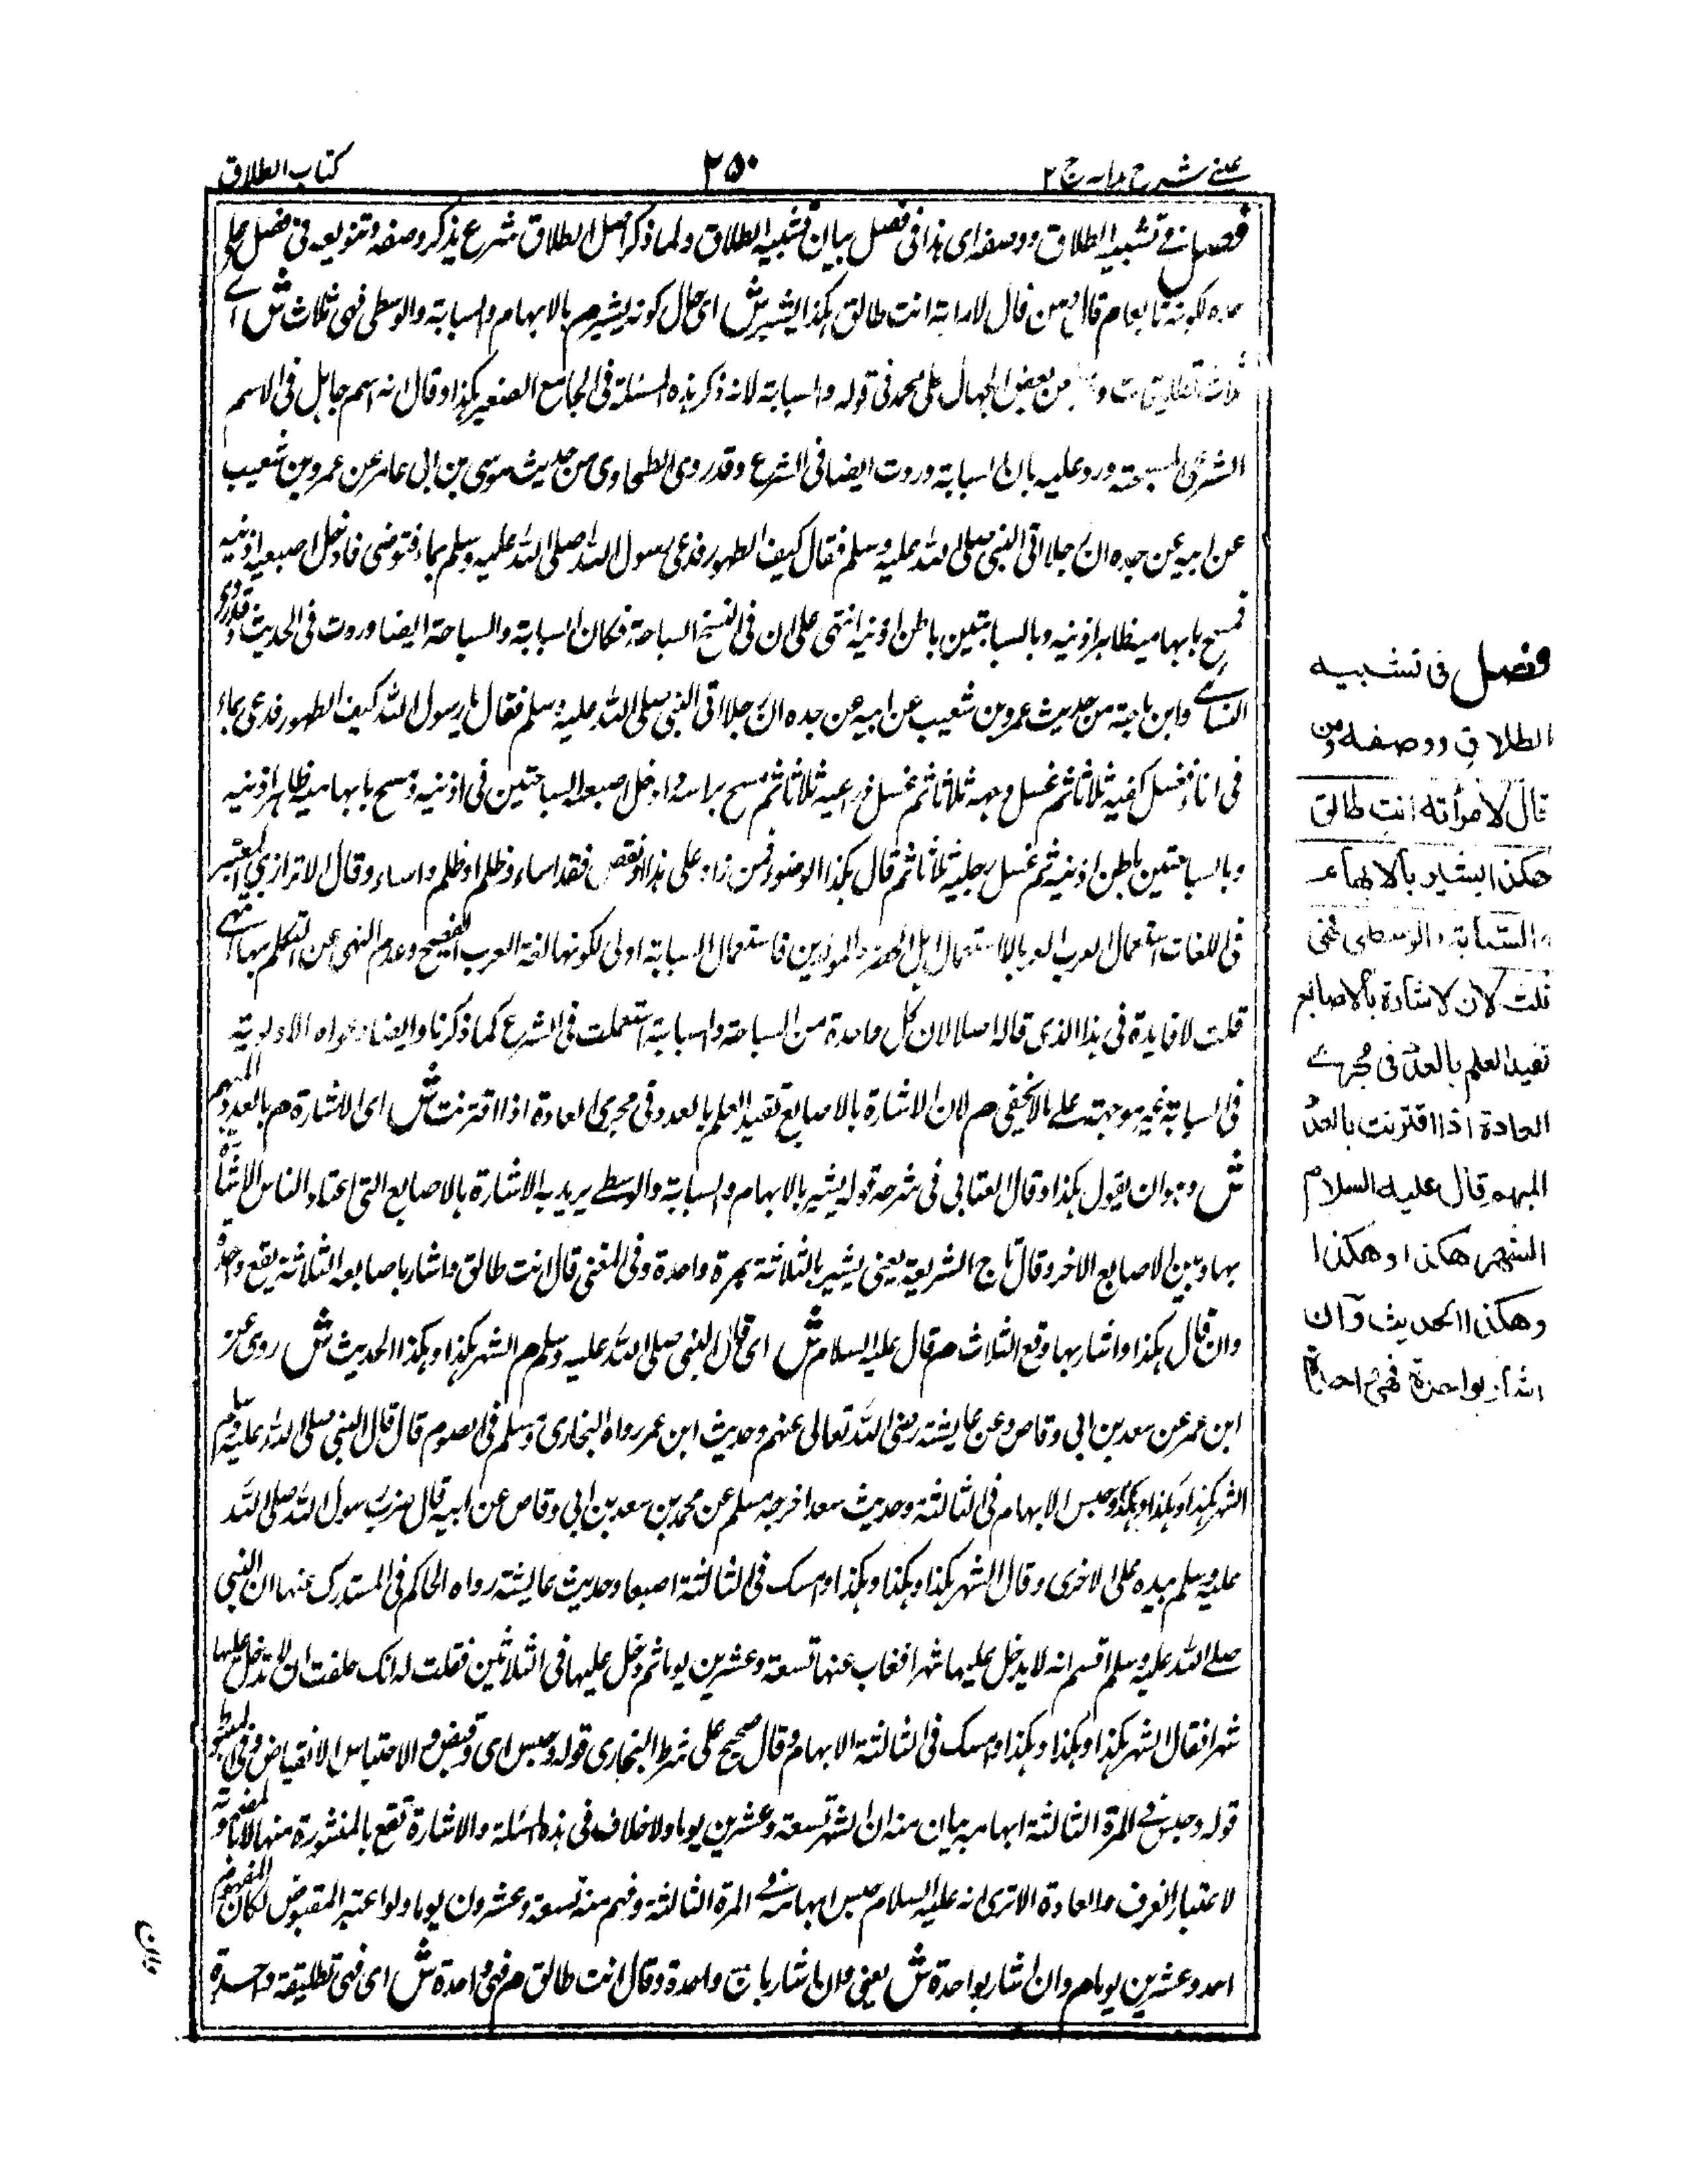 عینے شرح ہدایہ ج ۲
۲۵۰
كتاب الطلاق
فصل في تشبيه الطلاق ووصفه اى هذا فى فصل بيان تشبيه الطلاق ولما ذكر اصل الطلاق شرع يذكر وصفه وتنويعه فى فصل على
حده لكونه تابعا م قال ومن قال لامرأته انت طالق هكذا يشير ش اى حال كونه يشير م بالابهام والسبابة والوسطى فهى ثلاث ش اے
ثلاث تطليقات من بعض الجهال على محمد فى قوله والسبابة لانه ذكر هذه المسئلة فى الجامع الصغير هكذا وقال انه اسم جاهل فى الاسم
الشرعى المسبحة ورد عليه بان السبابة وردت ايضا فى الشرع وقد روى الطحاوى من حديث موسى بن ابى عامر عن عمرو بن شعيب
عن ابيه عن جده ان رجلا اتى النبى صلى الله عليه وسلم فقال كيف الطهور فدعى رسول الله صلى الله عليه وسلم بماء فتوضى فادخل اصبعيه اذنيه
فمسح بابهاميه ظاهر اذنيه وبالسبابتين باطن اذنيه انتهى على ان فى النسخ السباحة فكان السبابة والسباحة ايضا وردت فى الحديث وقد روى
النسائے وابن ماجة من حديث عمرو بن شعيب عن ابيه عن جده ان رجلا اتى النبى صلى الله عليه وسلم فقال يا رسول الله كيف الطهور فدعى بماء
فى اناء فغسل كفيه ثلاثا ثم غسل وجهه ثلاثا ثم غسل ذراعيه ثلاثا ثم مسح براسه وادخل اصبعيه السباحتين فى اذنيه ومسح بابهاميه ظاهر اذنيه
وبالسباحتين باطن اذنيه ثم غسل رجليه ثلاثا ثم قال هكذا الوضوء فمن زاد على هذا او نقص فقد اساء وظلم او ظلم واساء وقال الاترازى المعتبر
فى اللغات استعمال العرب العرباء لا استعمال اهل الحضر والمولدين فاستعمال السبابة اولى لكونها لغة العرب الفصيح وعدم النهى عن التكلم بها انتهے
قلت لا فايدة فى هذا الذى قاله اصلا لان كل واحدة من السباحة والسبابة استعملت فى الشرع كما ذكرنا وايضا دعواه الاولوية
فى السبابة غير موجهة على ما لا يخفى م لان الاشارة بالاصابع تفيد العلم بالعدد فى مجرى العادة اذا اقترنت ش اى الاشارة م بالعدد المبهم
ش وهو ان يقول هكذا وقال العتابى فى شرحه قوله يشير بالابهام والسبابة والوسطے يريد به الاشارة بالاصابع التى اعتاد الناس الاشارة
بها وبين الاصابع الاخر وقال تاج الشريعة يعنى يشير بالثلاثة بمرة واحدة وفى المغنى قال انت طالق واشار باصابعه الثلاثة يقع واحدة
وان قال هكذا واشار بها وقع الثلاث م قال عليه السلام ش اى قال النبى صلى الله عليه وسلم م الشهر هكذا وهكذا وهكذا الحديث ش روى عن
ابن عمر عن سعد بن ابى وقاص وعن عايشة رضى الله تعالى عنهم وحديث ابن عمر رواه البخارى ومسلم فى الصوم قال قال النبى صلى الله عليه وسلم
الشهر هكذا وهكذا وهكذا وحبس الابهام فى الثالثة وحديث سعد اخرجه مسلم عن محمد بن سعد بن ابى وقاص عن ابيه قال ضرب رسول الله صلى الله
عليه وسلم بيده على الاخرى وقال الشهر هكذا وهكذا وهكذا وامسك فى الثالثة اصبعا وحديث عايشة رواه الحاكم فى المستدرك عنها ان النبى
صلے الله عليه وسلم اقسم انه لا يدخل عليها شهرا فغاب عنها تسعة وعشرين يوما ثم دخل عليها فى الثلاثين فقلت له انك حلفت ان لا تدخل عليها
شهرا فقال الشهر هكذا وهكذا وهكذا وامسك فى الثالثة الابهام وقال صحيح على شرط البخارى قوله وحبس اى وقبض والاحتباس الانقباض وفى المبسوط
قوله وحبس فے المرة الثالثة ابهامه بيان منه ان الشهر تسعة وعشرين يوما ولا خلاف فى هذه المسئلة والاشارة تقع بالمنشورة منها لا بالمضمومة
لاعتبار العرف والعادة الا ترى انه عليه السلام حبس ابهامه فے المرة الثالثة وفهم منه تسعة وعشرون يوما ولو اعتبر المقبوض لكان المفهوم
احد وعشرين يوما م وان اشار بواحدة ش يعنى وان اشار باصبع واحدة وقال انت طالق م فهى واحدة ش اى فهى تطليقة واحدة
وان
فصل فى تشبيه
الطلاق ووصفه ومن
قال لامرأته انت طالق
هكذا يشير بالابهام
والسبابة والوسطى فهى
ثلث لان الاشارة بالاصابع
تفيد العلم بالعدد فى مجرے
العادة اذا اقترنت بالعدد
المبهم قال عليه السلام
الشهر هكذا وهكذا
وهكذا الحديث وان
اشار بواحدة فهى واحدة